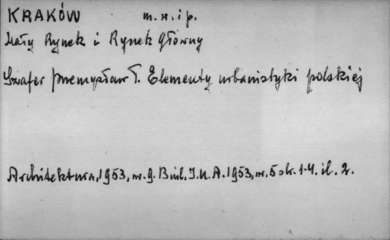 KRAKÓW m. w. i p.
Mały Rynek i Rynek Główny
Szafer Przemysław T. Elementy urbanistyki polskiej
Architektura, 1953, nr. 9. Biul. I.U.A. 1953, nr. 5 str. 1-4. il. 2.